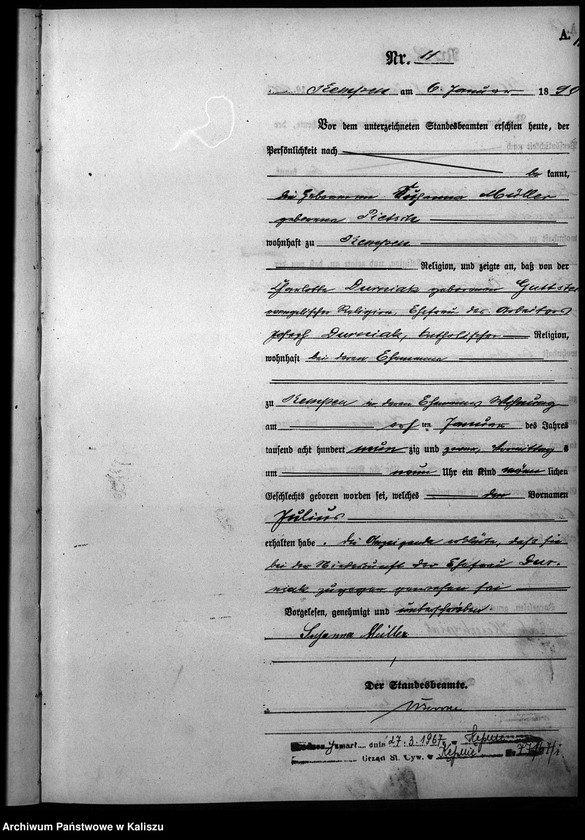 A.
Nr. 11
Kempen am 6. Januar 1890
Vor dem unterzeichneten Standesbeamten erschien heute, der
Persönlichkeit nach
be kannt,
die Hebamme Susanna Müller
geborene
wohnhaft zu Kempen
Religion, und zeigte an, daß von der
Charlotte Durniak geborenen
evangelischer Religion, Ehefrau des Arbeiters
Joseph Durniak, katholischer Religion,
wohnhaft bei deren Ehemanne
zu Kempen in deren Ehemannes Wohnung
am ten Januar des Jahres
tausend acht hundert neun zig und Vormittag s
um neun Uhr ein Kind männ lichen
Geschlechts geboren worden sei, welches den Vornamen
Julius
erhalten habe. Die Anzeigende erklärte, daß sie
bei der Niederkunft der Ehefrau Dur-
niak zugegen gewesen sei
Vorgelesen, genehmigt und unterschrieben
Susanna Müller
Der Standesbeamte.
dnia 27.3.1967
Urząd St. Cyw. w Kępnie Nr
Archiwum Państwowe w Kaliszu